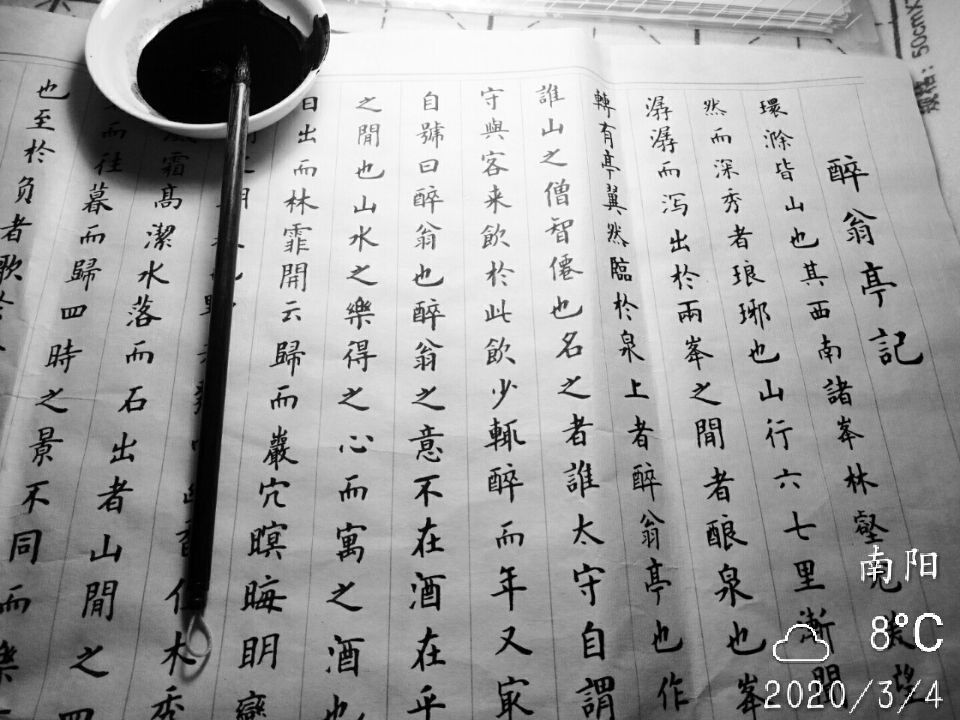 醉翁亭記
環滁皆山也其西南諸峯林壑尤美望
然而深秀者琅琊也山行六七里漸聞
潺潺而泻出於兩峯之間者酿泉也峯
轉有亭翼然臨於泉上者醉翁亭也作
誰山之僧智僊也名之者誰太守自謂
守與客来飲於此飲少輒醉而年又寂
自號曰醉翁也醉翁之意不在酒在乎
之間也山水之樂得之心而寓之酒也
日出而林霏開云歸而巖穴暝晦明變
木秀
霜高潔水落而石出者山間之四
而往暮而歸四時之景不同而樂
也至於负者歌
规格：50cm×
南阳
8°C
2020/3/4